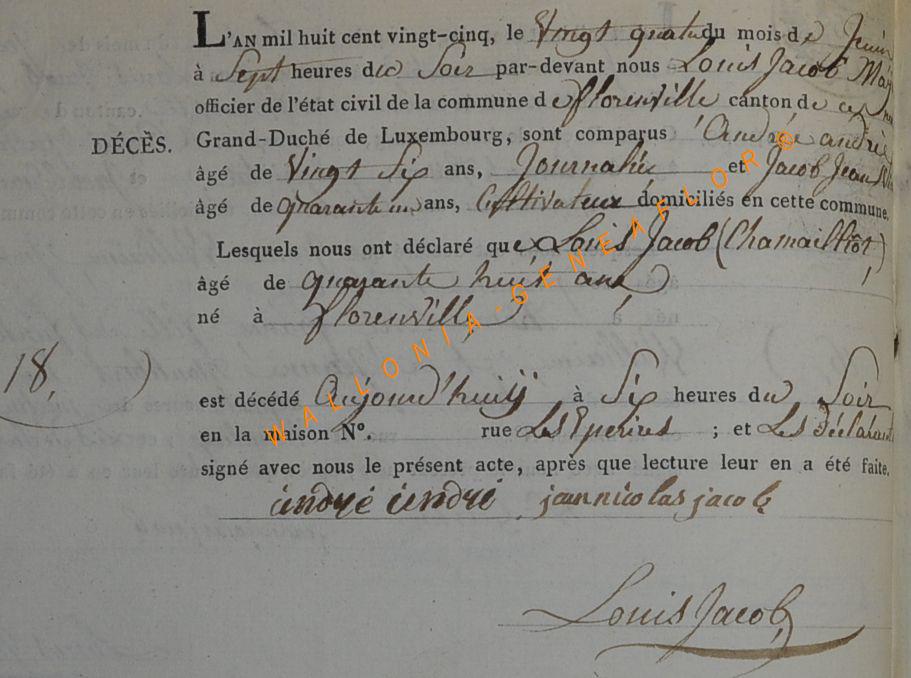 L'AN mil huit cent vingt-cinq, le Vingt quatre du mois de Juin
à Sept heures du Soir par-devant nous Louis Jacob
officier de l'état civil de la commune de florenville canton de ce
Grand-Duché de Luxembourg, sont comparus André andré
DÉCÈS.
âgé de Vingt Six ans, Journalier et Jacob Jean
âgé de quarante un ans, Cultivateur domiciliés en cette commune.
Lesquels nous ont déclaré que Louis Jacob (Chamaillot)
âgé de quarante huit ans
né à florenville
18
est décédé Aujourd'huij à Six heures du Soir
en la maison N°. rue Les Eperires ; et Les Déclarant
signé avec nous le présent acte, après que lecture leur en a été faite.
andré andré jeannicolas jacob
Louis Jacob
WALLONIA-GENEAFLOR©